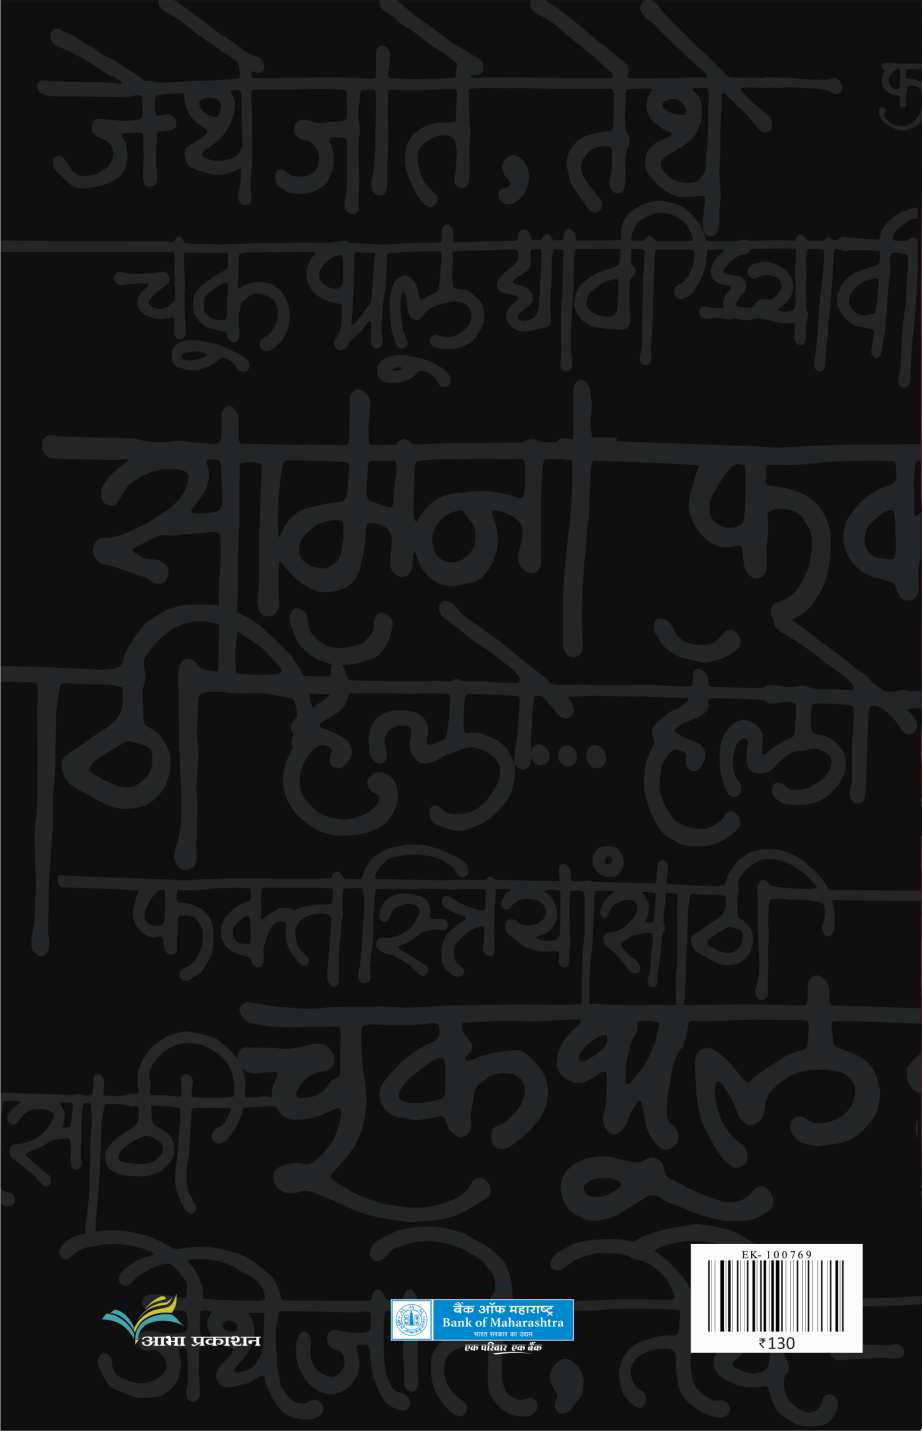 जेथे जाते, तेथे
फ
चूक भूल द्यावी घ्यावी
सामना फक
ठी हॅलो... हॅलो
फक्त स्त्रियांसाठी
साठी चूक भूल
जेथे जाते, तेथे
EK-100769
₹130
आभा प्रकाशन
बैंक ऑफ महाराष्ट्र
Bank of Maharashtra
भारत सरकार का उद्यम
एक परिवार एक बैंक